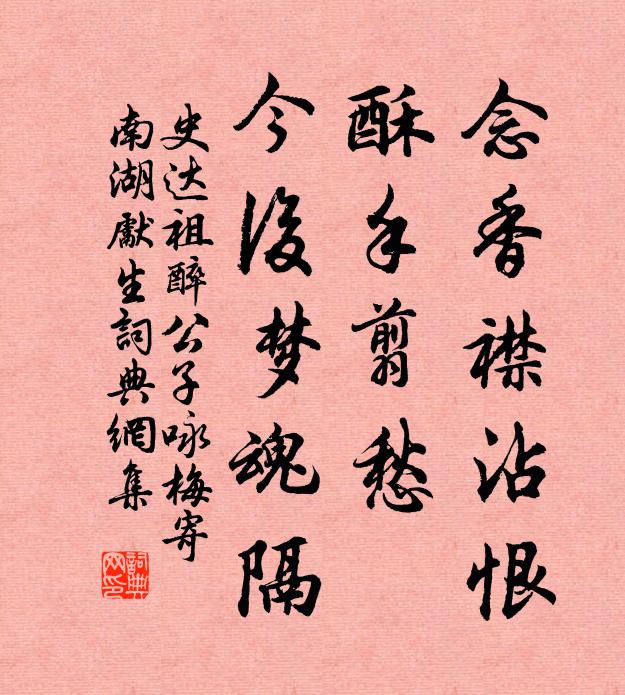 念香襟沾恨
酥手翦愁
今後梦魂隔
史达祖醉公子咏梅寄
南湖獻生詞典網集
詞典
网印